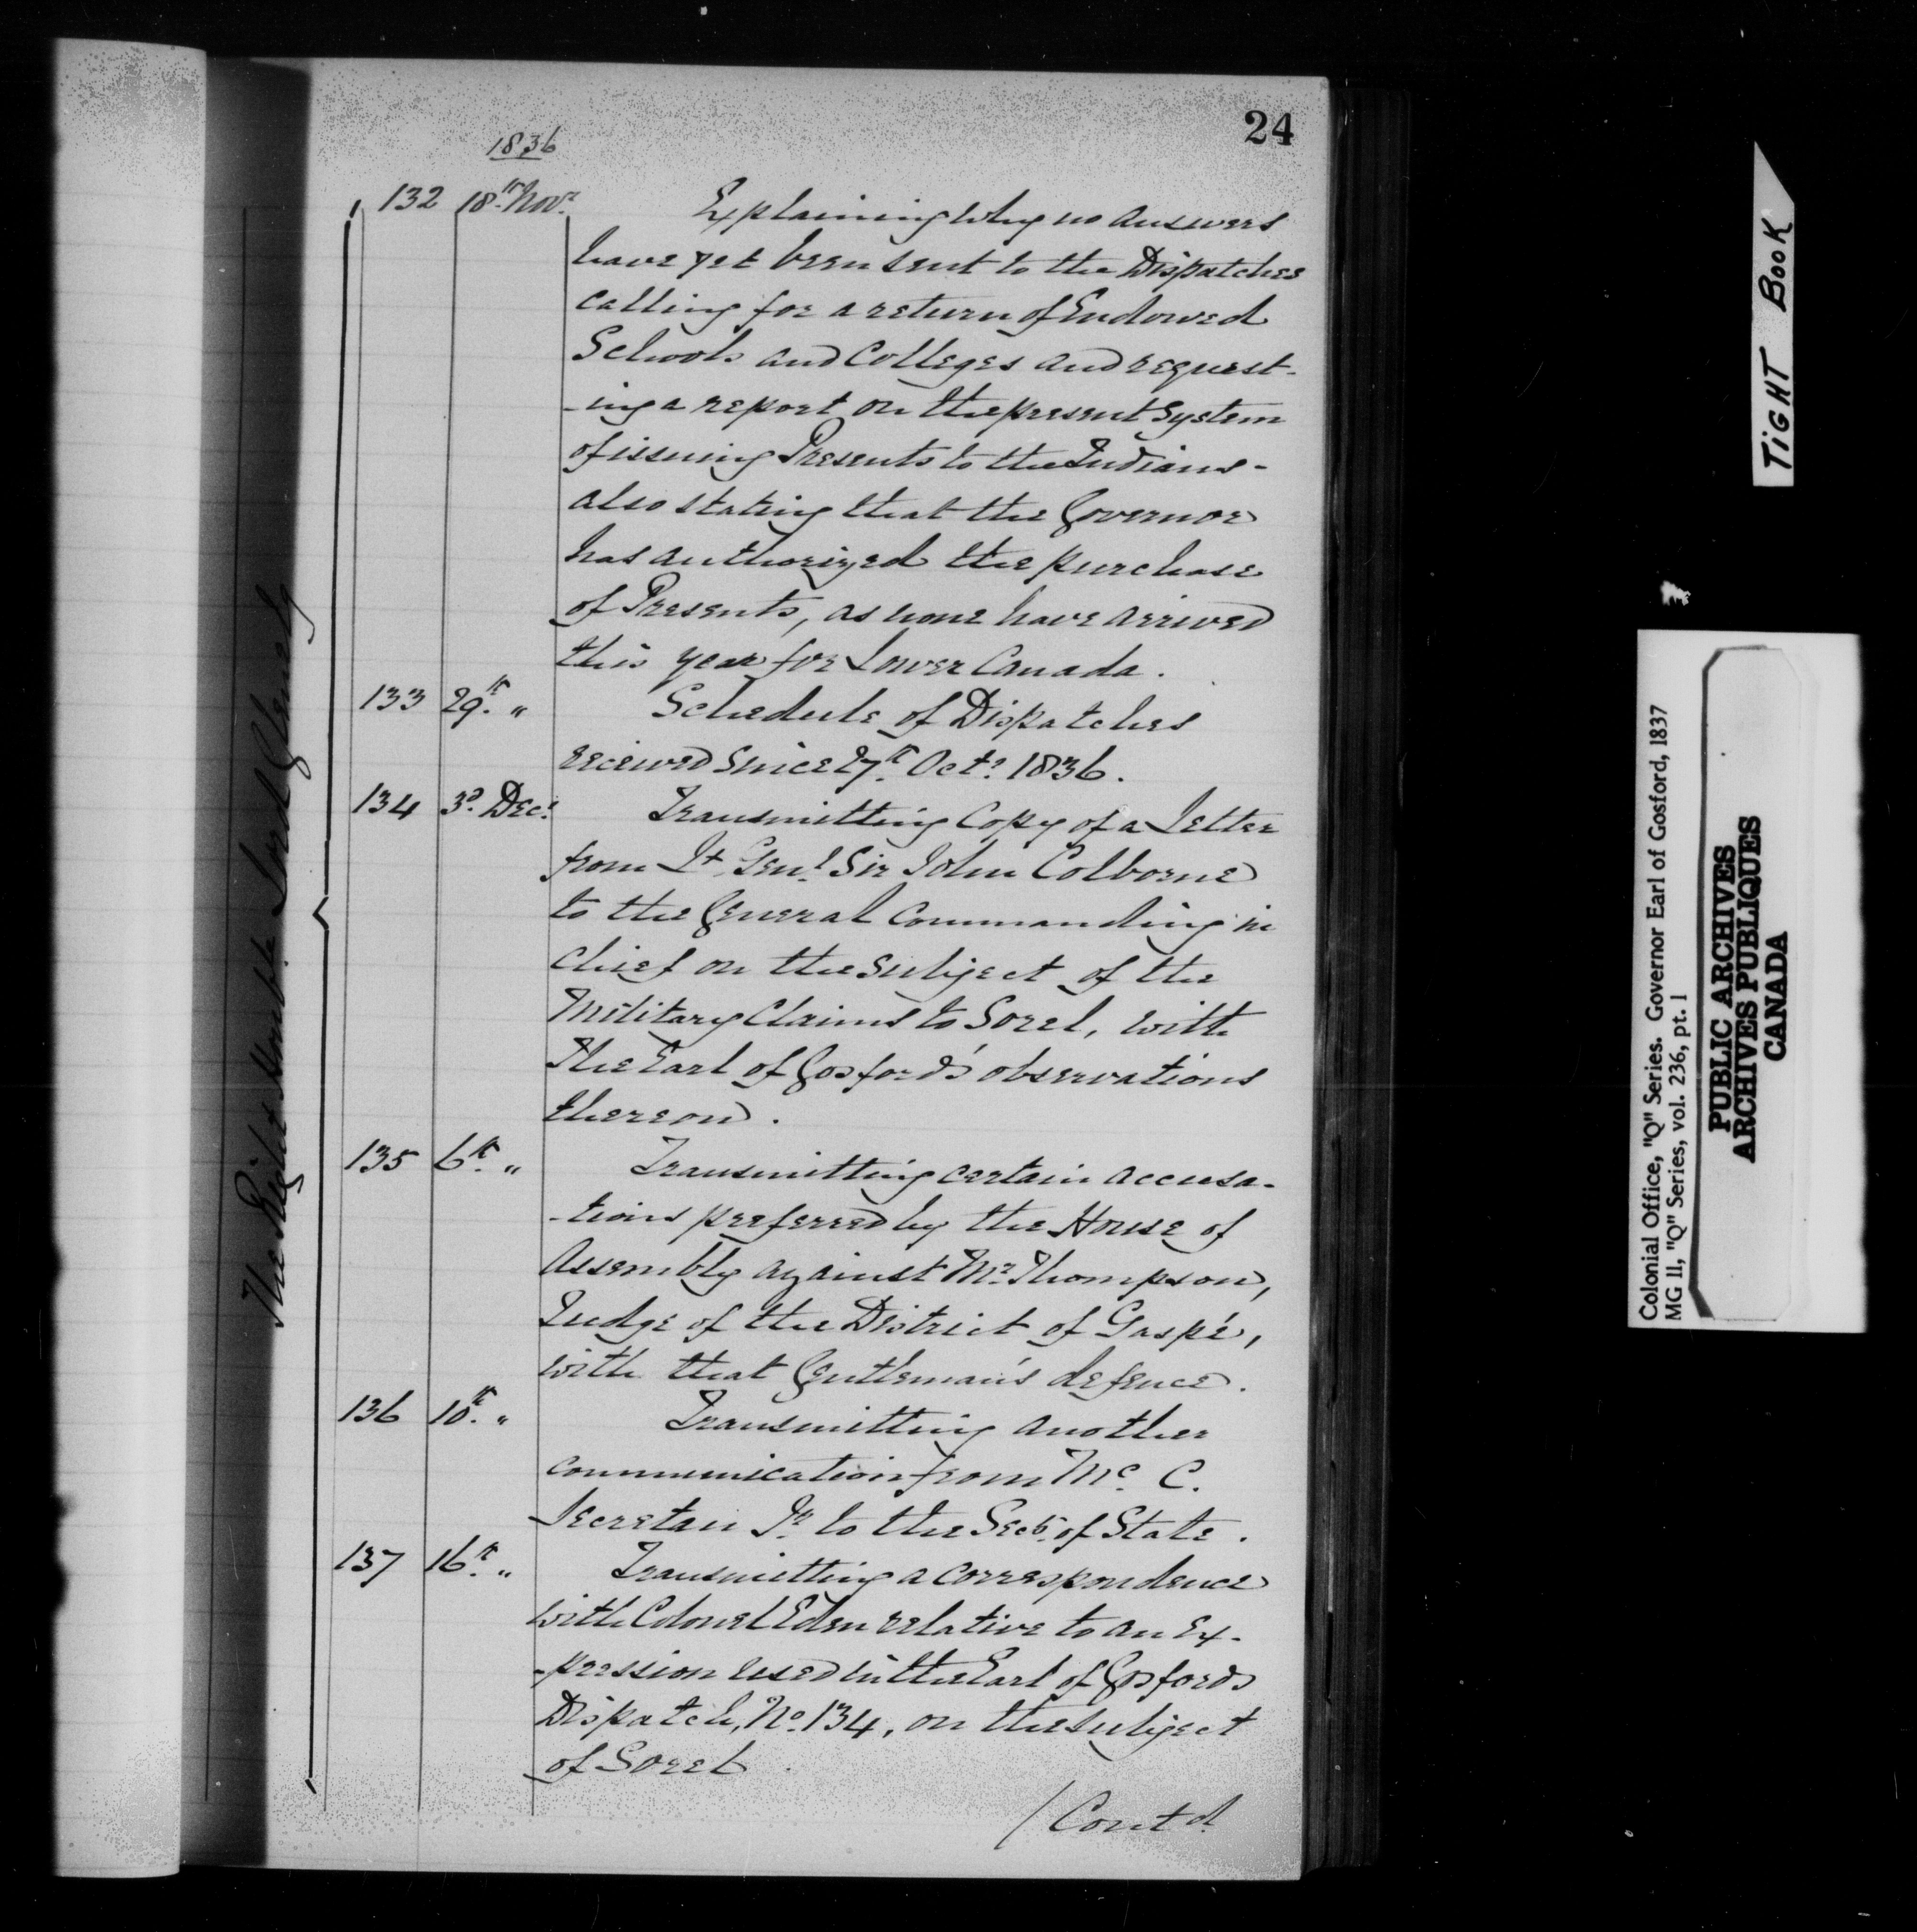 24
1836
The Right Honble Lord Glenelg
132 18th Novr Explaining why no answers
have yet been sent to the Dispatches
calling for a return of Endowed
Schools and Colleges and request-
-ing a report on the present system
of issuing Presents to the Indians -
also stating that the Governor
has authorized the purchase
of Presents, as none have arrived
this year for Lower Canada.
133 29th " Schedule of Dispatches
received since 27th Octr 1836.
134 3d Decr Transmitting Copy of a Letter
from Lt Genl Sir John Colborne
to the General Commanding in
chief on the subject of the
Military Claims to Sorel, with
The Earl of Gosford's observations
thereon.
135 6th " Transmitting certain accusa-
-tions preferred by the House of
Assembly against Mr Thompson,
Judge of the District of Gaspé,
with that Gentleman's defence.
136 10th " Transmitting another
communication from Mr C.
Secretan Jr to the Secy of State.
137 16th " Transmitting a correspondence
with Colonel Eden relative to an Ex-
-pression used in the Earl of Gosfords
Dispatch, No. 134, on the subject
of Sorel.
/Contd
TIGHT BOOK
Colonial Office, "Q" Series. Governor Earl of Gosford, 1837
MG 11, "Q" Series, vol. 236, pt. 1
PUBLIC ARCHIVES
ARCHIVES PUBLIQUES
CANADA